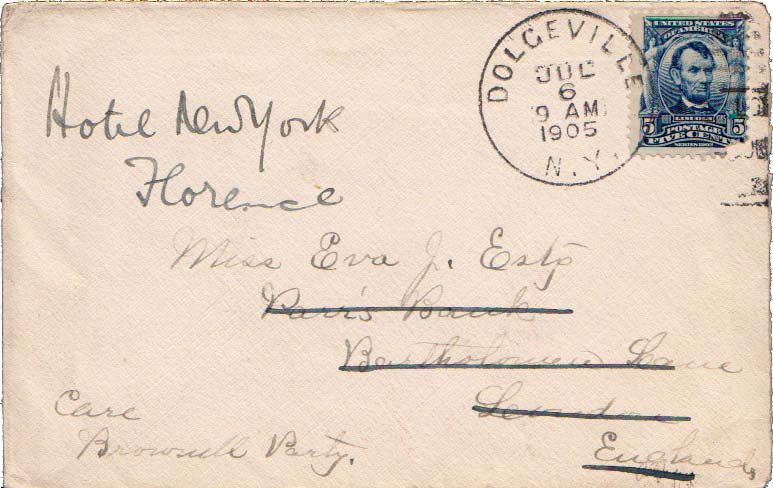 DOLGEVILLE
JUL
6
9 AM
1905
N.Y.
UNITED STATES
OF AMERICA
LINCOLN
5 POSTAGE 5
FIVE CENTS
SERIES 1902
Hotel New York
Florence
Miss Eva J. Esty
Parr's Bank
Bartholomew Lane
London
England
Care
Brownell Party.